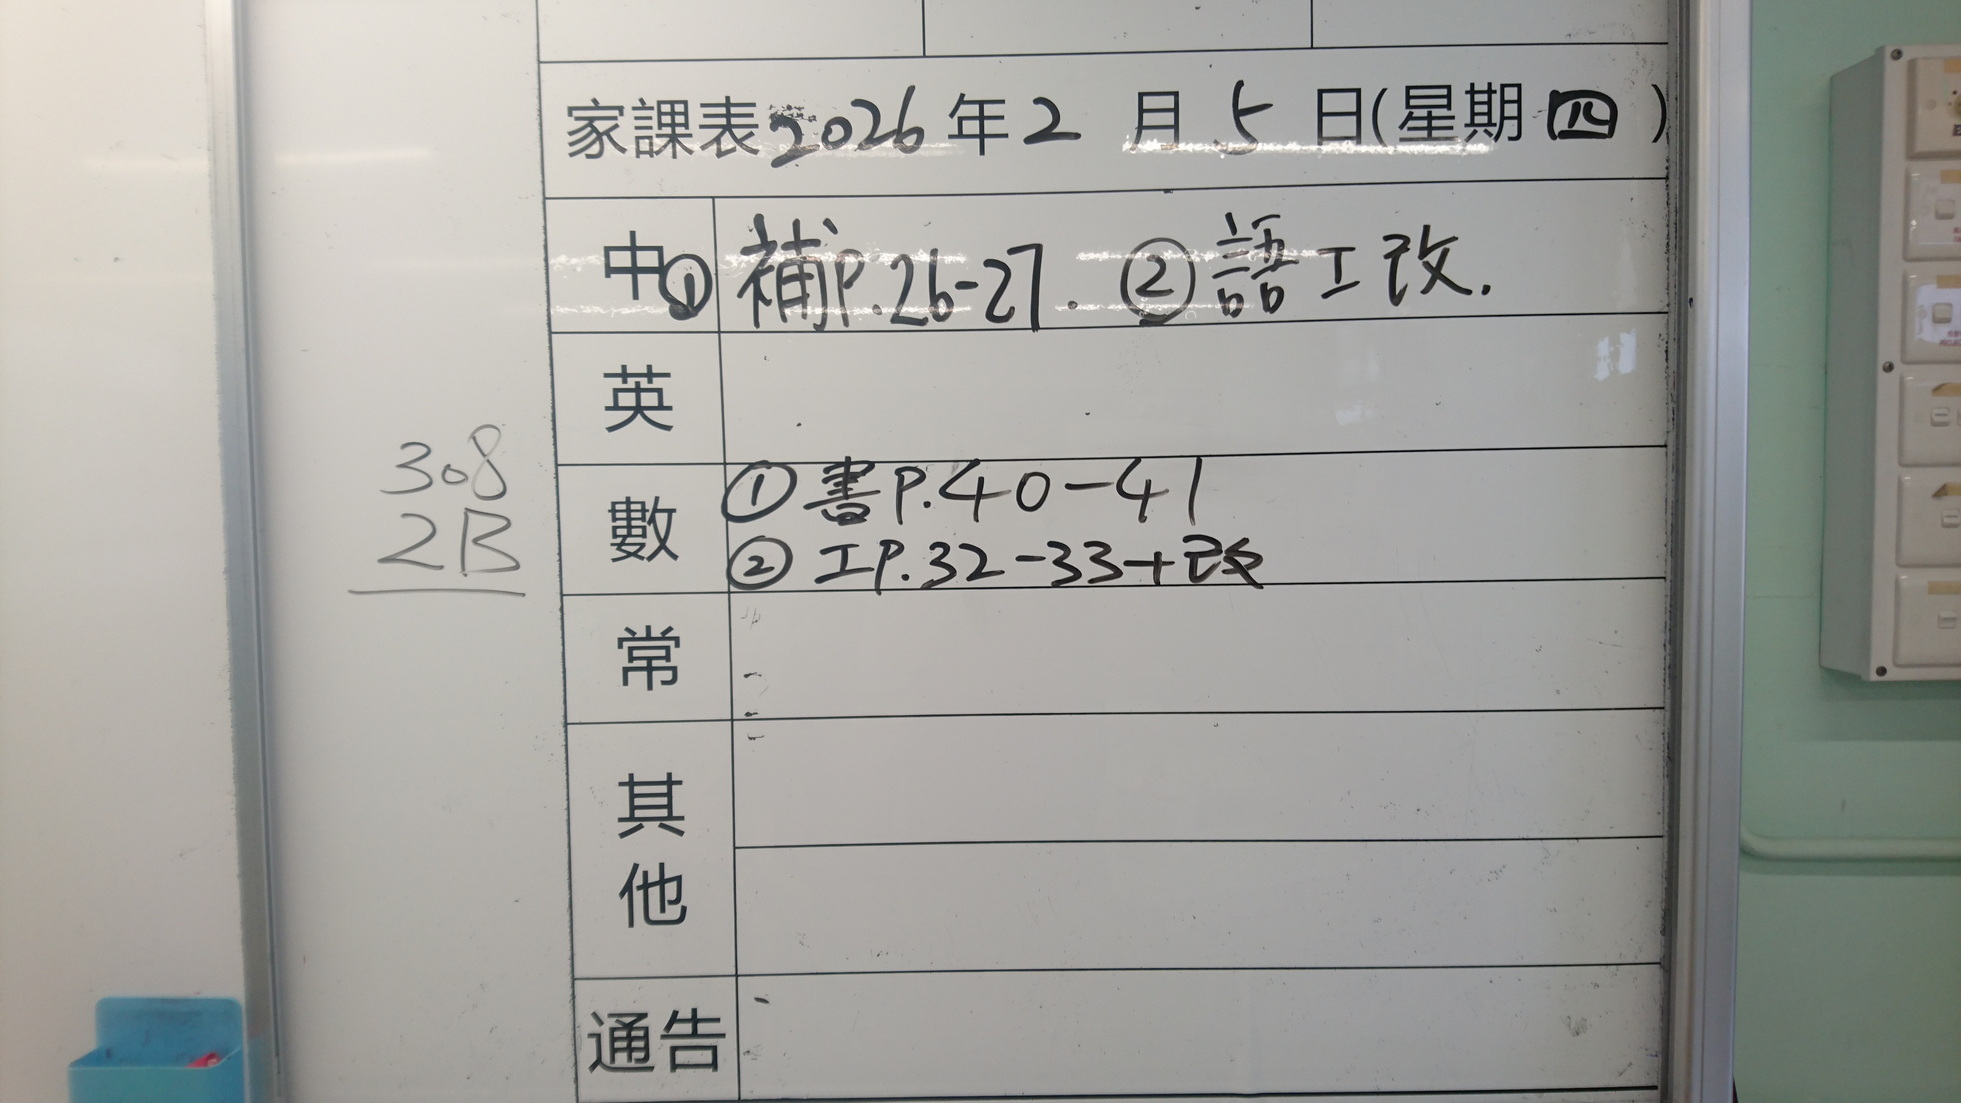 家課表2026年2月5日(星期四)
中①補P.26-27. ②語工改.
英
308
2B
數
①書P.40-41
②工P.32-33+改
常
其他
通告